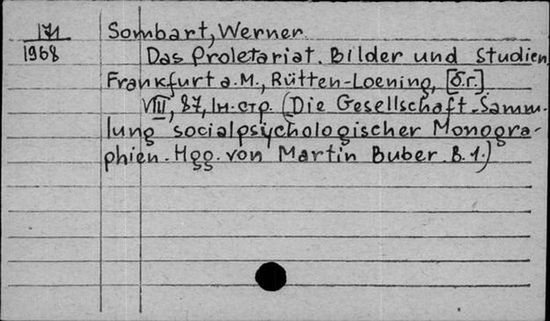 171
1968
Sombart, Werner
Das Proletariat. Bilder und Studien
Frankfurt a. M., Rütten-Loening, [б.г.]
VIII, 87, IH. стр. (Die Gesellschaft. Samm-
lung socialpsychologischer Monogra-
phien. Hgg. von Martin Buber. B. 1.)